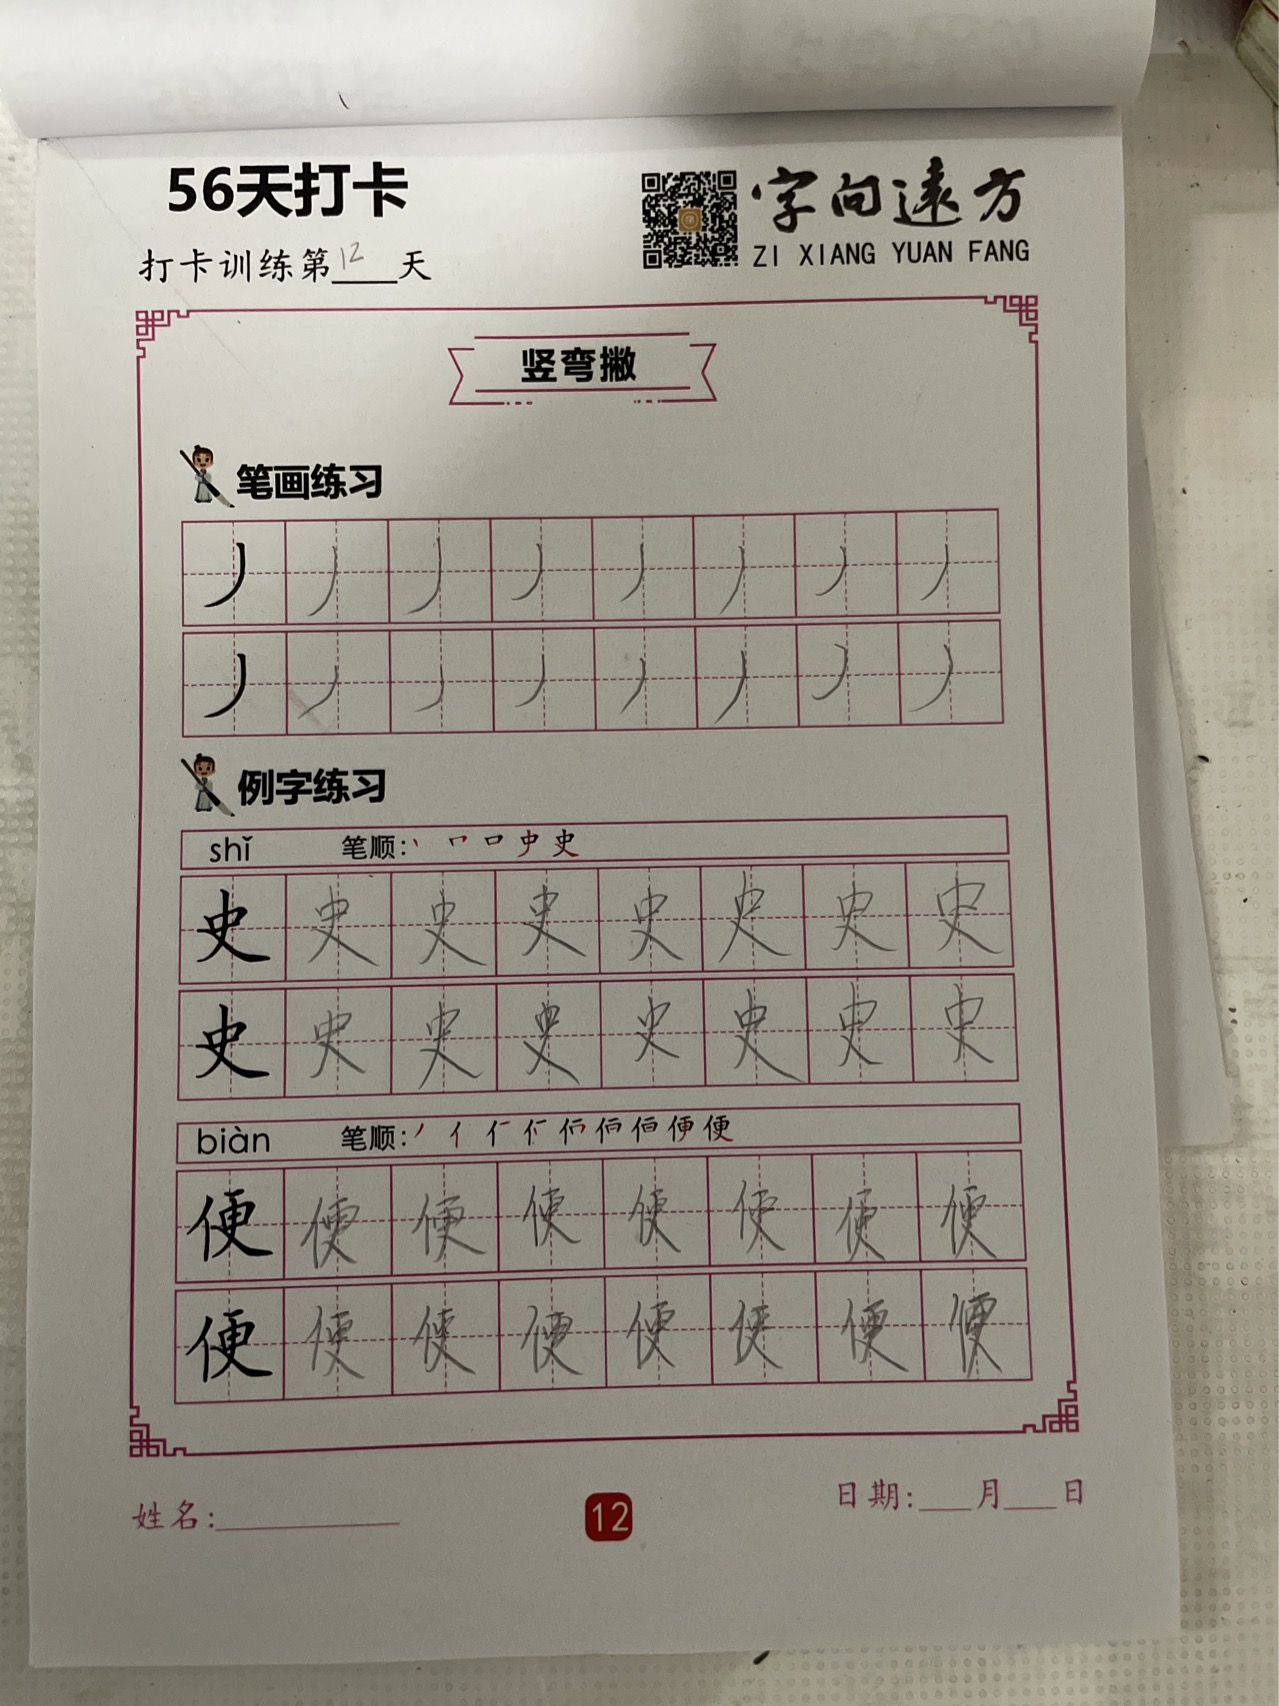 56天打卡
字向遠方
ZI XIANG YUAN FANG
打卡训练第12天
竖弯撇
笔画练习
丿 丿 丿 丿 丿 丿 丿 丿
丿 丿 丿 丿 丿 丿 丿 丿
例字练习
shǐ 笔顺:
史 史 史 史 史 史 史 史
史 史 史 史 史 史 史 史
biàn 笔顺:
便 便 便 便 便 便 便 便
便 便 便 便 便 便 便 便
姓名:
12
日期:___月___日